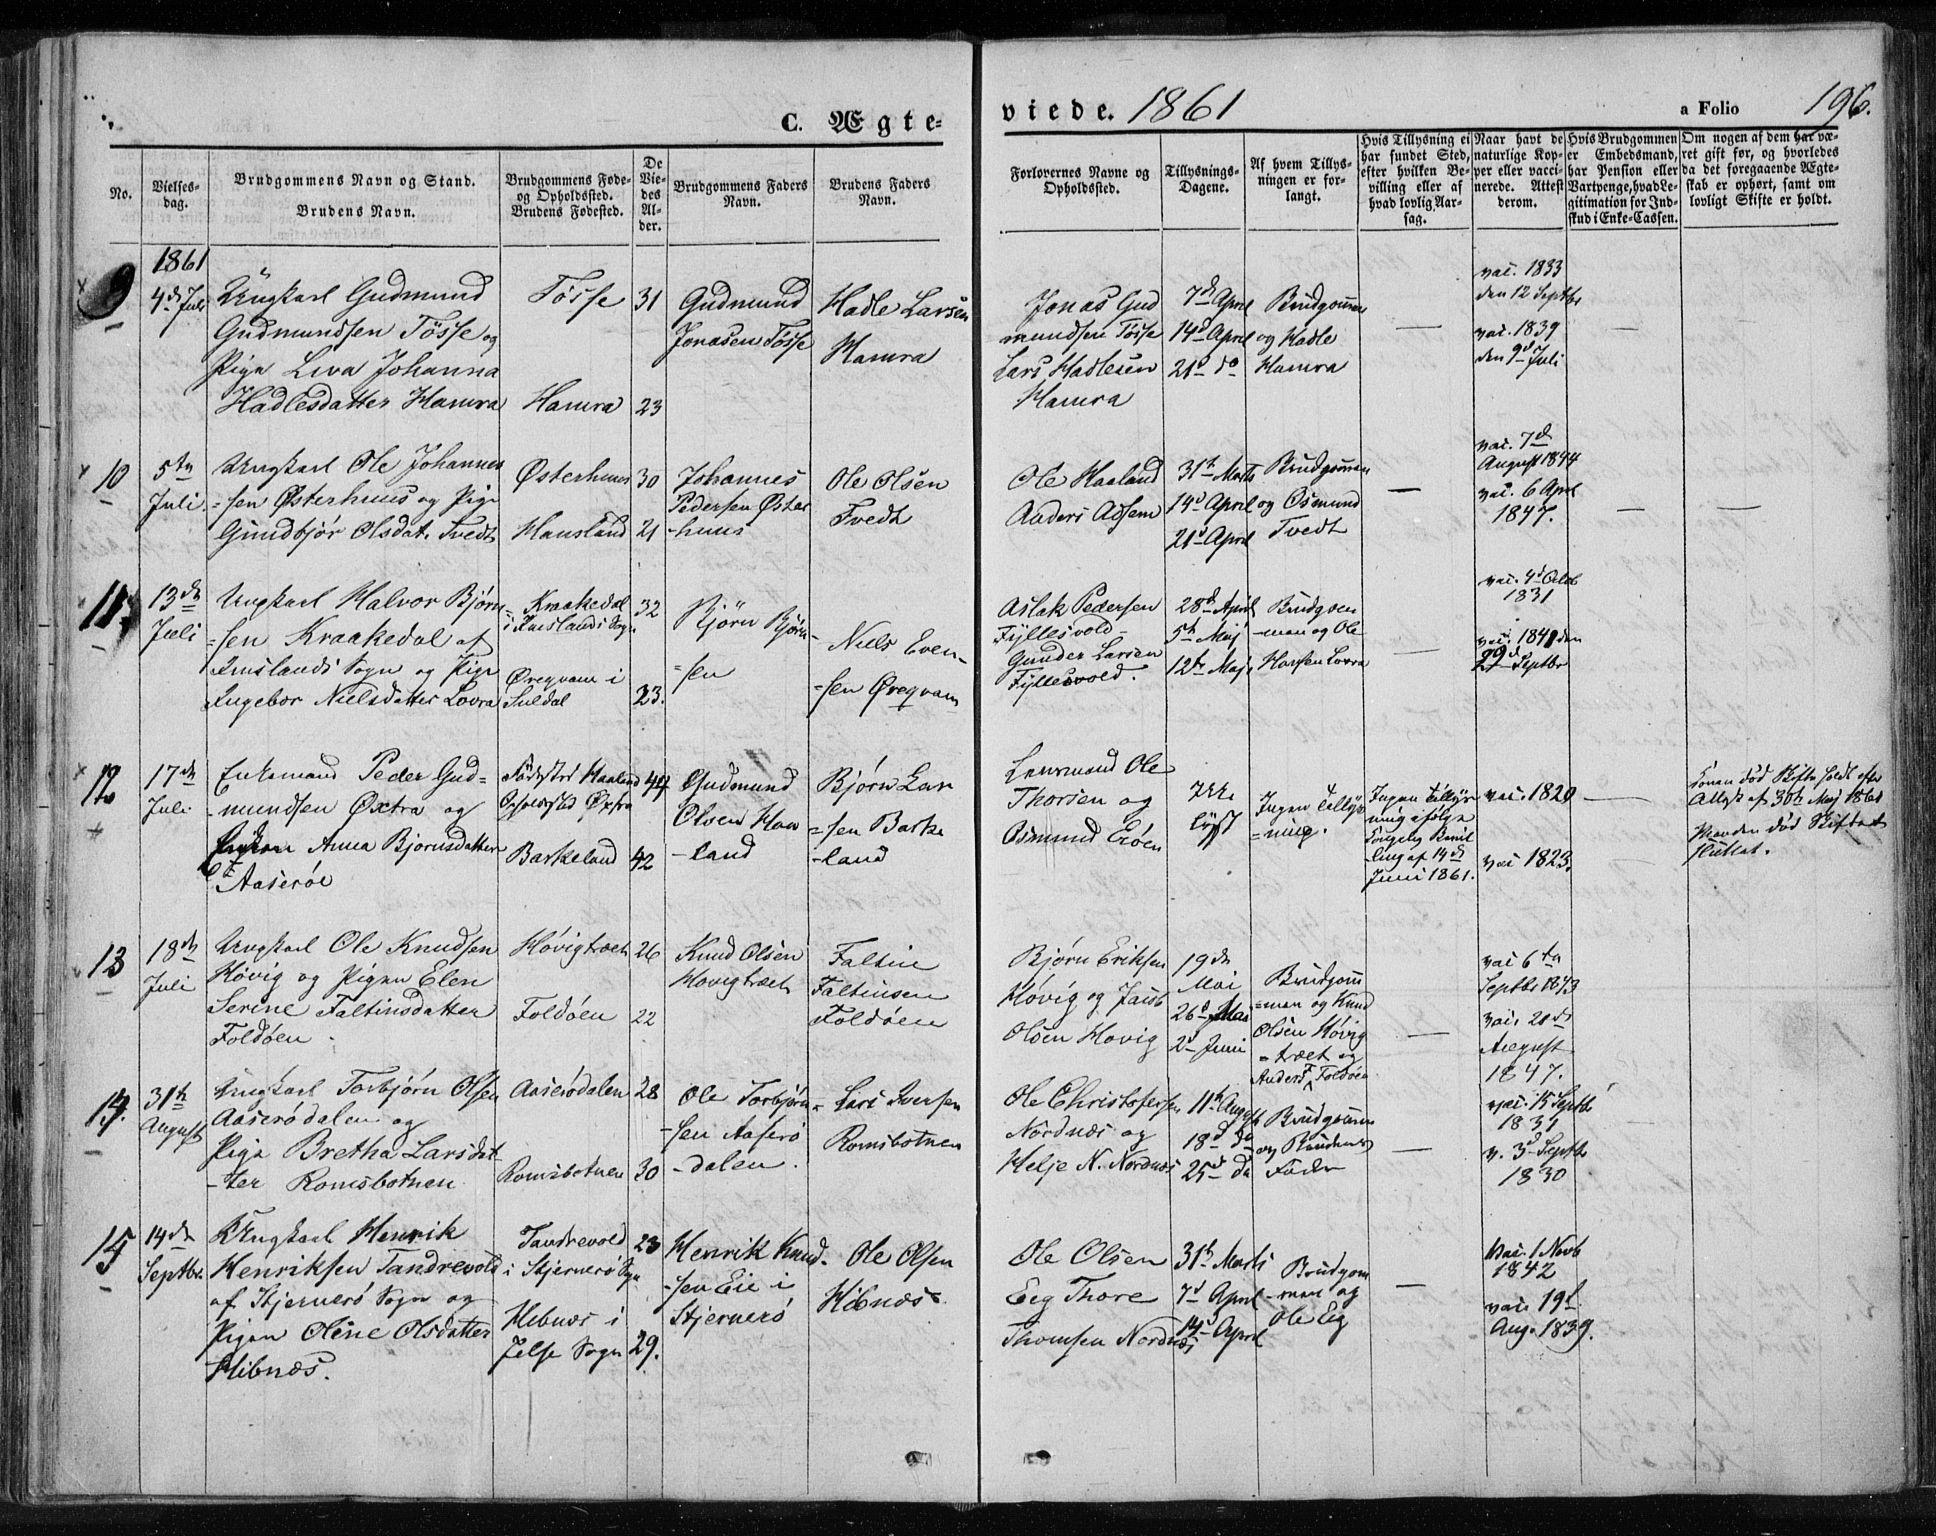 C. Ægte-
viede. 1861
a Folio 196.
No.
Vielses-
dag.
Brudgommens Navn og Stand.
Brudens Navn.
Brudgommens Føde-
og Opholdssted.
Brudens Fødested.
De
Vie-
des
Al-
der.
Brudgommens Faders
Navn.
Brudens Faders
Navn.
Forlovernes Navne og
Opholdssted.
Tillysnings-
Dagene.
Af hvem Tillys-
ningen er for-
langt.
Hvis Tillysning ei
har fundet Sted,
efter hvilken Be-
villing eller af
hvad lovlig Aar-
sag.
Naar havt de
naturlige Kop-
per eller vacci-
nerede. Attest
derom.
Hvis Brudgommen
er Embedsmand,
har Pension eller
Vartpenge, hvad Le-
gitimation for Ind-
skud i Enke-Cassen.
Om nogen af dem har væ-
ret gift før, og hvorledes
da det foregaaende Ægte-
skab er ophørt, samt om
lovligt Skifte er holdt.
1861
9
4de Juli
Ungkarl Gudmund
Gudmundsen Tösse og
Pige Liva Johanna
Hadlesdatter Hamra
Tösse
Hamra
31
23
Gudmund
Jonasen Tösse
Hadle Larsen
Hamra
Jonas Gud
mundsen Tösse
Lars Hadlesen
Hamra
7de April
14d April
21d do
Brudgommen
og Hadle
Hamra
vac. 1833
den 12 Septbr
vac. 1839
den 9d Juli
10
5te
Juli
Ungkarl Ole Johannes
-sen Østerhuus og Pige
Gundbjör Olsdat. Tvedt
Østerhuus
Hausland
30
21
Johannes
Pedersen Øster
-huus
Ole Olsen
Tvedt
Ole Haaland
Anders
31te Marts
14d April
21d April
Brudgommen
og Osmund
Tvedt
vac. 7d
August 1844
vac. 6 April
1847.
11
13de
Juli
Ungkarl Halvor Bjørn
-sen Kraakedal af
Imslands Sogn og Pige
Ingebor Nielsdatter Lovra
Kraakedal
i Imslands Sogn
Øreqvam i
Suldal
32
23.
Bjørn Bjørn-
-sen
Niels Even-
-sen Øreqvam
Aslak Pedersen
Fyllesvold
Gunder Larsen
Fyllesvold.
28de April
5te Maj
12te Maj
Brudgom
-man og Ole
Hansen Lovra
vac. 4d Octb
1831
vac. 1841 den
29d Septbr
12
17de
Juli
Enkemand Peder Gud-
mundsen Øxtra og
Enken Anna Bjørnsdatter
Aaserøe
Fødested Haaland
Opholdssted Øxtra
Barkeland
44
42
Gudmund
Olsen Haa
-land
Bjørn Lar
-sen Barke
-land
Lensmand Ole
Thorsen og
Osmund Erøen
Ikke
lyst
Ingen Tillys
-ning.
Ingen Tillys
ning ifølge
Kongelig Bevil
-ling af 14de
Juni 1861.
vac. 1820
vac 1823.
Konen død Skifte holdt efter
Attest af 30te Maj 1861
Manden død Skiftet
sluttet.
13
18de
Juli
Ungkarl Ole Knudsen
Høvig og Pigen Elen
Serine Faltinsdatter
Foldøen.
Høvigtræet
Foldøen
26
22
Knud Olsen
Hovigtræet
Faltin
Faltinsen
Foldöen
Bjørn Eriksen
Høvig og Jacob
Olsen Hovig
19de
Mai
26d Mai
2d Juni
Brudgom
-man og Knud
Olsen Høvig
-træet og
Anders F Foldöen
vac 6te
Septbr 1843
vac. 20de
August
1847.
14.
31te
August
Ungkarl Torbjörn Olsen
Aaserödalen og
Pige Bretha Larsdat
-ter Romsbotnen
Aaserödalen
Romsbotnen
28
30
Ole Torbjörn-
-sen Aaserö
-dalen.
Lars Iversen
Romsbotnen
Ole Christofersen
Nordnæs og
Helje N. Nordnæs
11te August
18d do
25d do
Brudgommen
og Brudens
Fader
vac. 15 Septbr
1831
v. 3d Septbr
1830
15
14de
Septbr.
Ungkarl Henrik
Henriksen Tandrevold
af Stjernerö Sogn og
Pigen Oline Olsdatter
Hibnæs.
Tandrevold
i Stjernerö Sogn
Hebnæs i
Jelse Sogn
23
29.
Henrik Knud-
-sen Eie i
Stjernerö
Ole Olsen
Hibnæs
Ole Olsen
Eeg Thore
Thomsen Nordnæs
31te Marts
7d April
14d April
Brudgom
-man og
Ole Eig
Vac. 1 Novb
1842
vac. 19d
Aug. 1839.